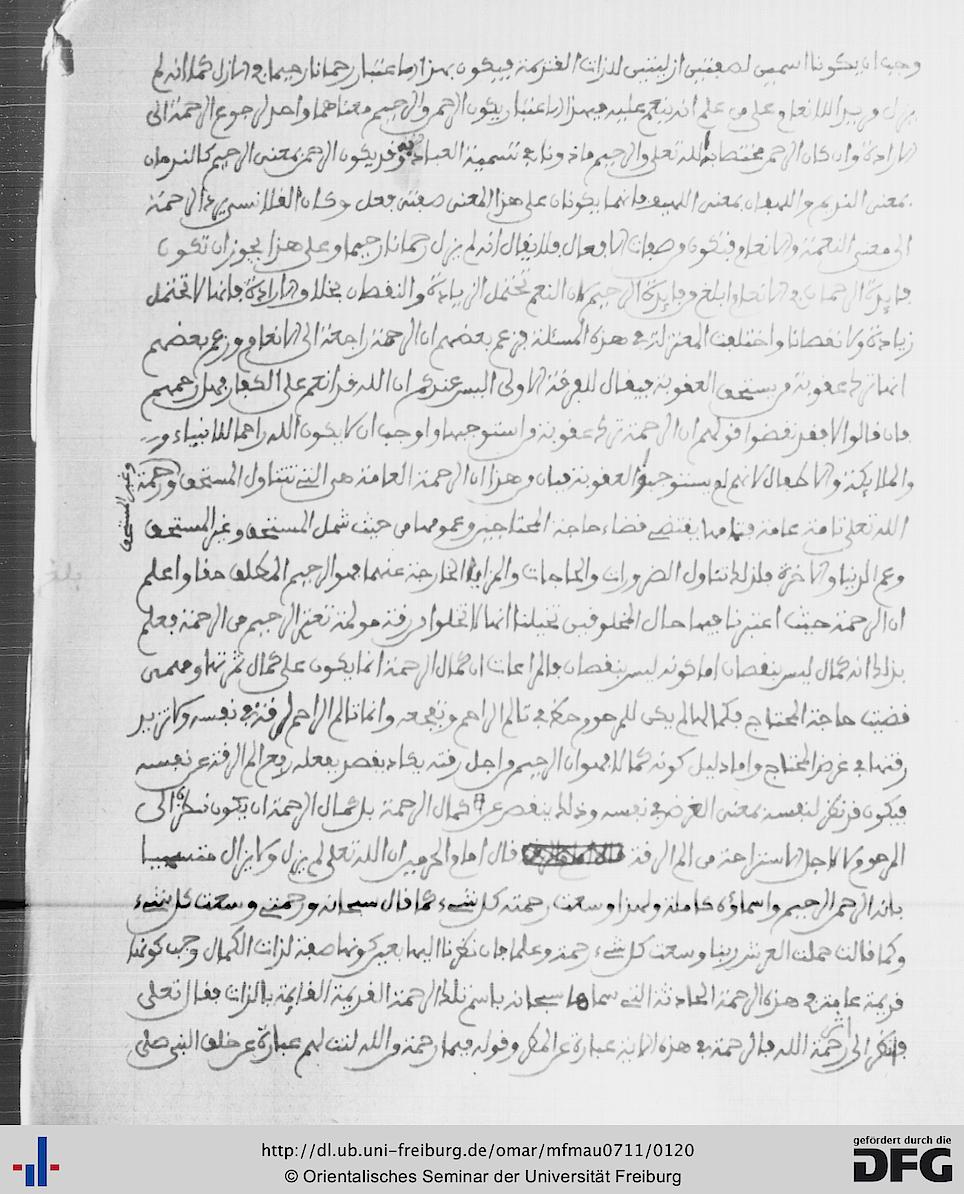 وجب ان يكونا اسمين لصفتين ازليتين للذات القديمة فيكون بهذا الاعتبار رحمانا رحيما في الازل كما انه لم
يزل مريدا للانعام على من علم انه ينعم عليه فبهذا الاعتبار يكون الرحمن والرحيم معناهما واحد لرجوع الرحمة الى
الارادة وان كان الرحمن مختصا به الله تعلى والرحيم ماذونا في تسمية العباد به وقد يكون الرحمن بمعنى الرحيم كالندمان
بمعنى النديم واللهفان بمعنى اللهيف فانما يكونان على هذا المعنى صفتي فعل وكان القلانسي يرد الرحمة
الى معنى النعمة والانعام فتكون من صفات الافعال فلا يقال انه لم يزل رحمانا رحيما وعلى هذا يجوز ان تكون
فايدة الرحمان في الانعام ابلغ من فايدة الرحيم لان النعم تحتمل الزيادة والنقصان بخلاف الارادة فانها لا تحتمل
زيادة ولا نقصانا واختلفت المعتزلة في هذه المسئلة فزعم بعضهم ان الرحمة راجعة الى الانعام وزعم بعضهم
انها ترك عقوبة من يستحق العقوبة فيقال للفرقة الاولى اليس عندكم ان الله قد انعم على الكفار فهل رحمهم
فان قالوا لا فقد نقضوا قولهم ان الرحمة ترك عقوبة من استوجبها واوجب ان لا يكون الله راحما للانبياء
والملايكة والاطفال لانهم لم يستوجبوا العقوبة فبان من هذا ان الرحمة العامة هي التي تتناول المستحق ورحمة
وغير المستحق
الله تعلى تامة عامة فتمامها يقتضي قضاء حاجة المحتاجين وعمومها من حيث شمل المستحق وغير المستحق
وعم الدنيا والاخرة فلذلك تناول الضرورات والحاجات والمزايا الخارجة عنهما فهو الرحيم المطلق حقا واعلم
ان الرحمة حيث اعتبرناها فيها حال المخلوقين تخيلنا انها لا تخلوا من رقة مولمة تعتري الرحيم من الرحمة فعلم
بذلك انه كمال ليس بنقصان اما كونه ليس بنقصان فالمراعات ان كمال الرحمة انما يكون على كمال ثمرتها ومهمى
قضيت حاجة المحتاج بكمالها لم يكن للمرحوم حظ في تالم الراحم وتفجعه وانما تالم الراحم لرقة في نفسه ولا تزيد
رقتها في غرض المحتاج واما دليل كونه كمالا فهو ان الرحيم من اجل رقته يكاد يقصد بفعله رفع الم الرقة عن نفسه
فيكون قد نظر لنفسه بمعنى الغرض في نفسه وذلك ينقص عن كمال الرحمة بل كمال الرحمة ان يكون نظره الى
المرحوم لا لاجل الاستراحة من الم الرقة قال امام الحرمين ان الله تعلى لم يزل ولا يزال متسميا
بانه الرحمن الرحيم واسماؤه كاملة ولهذا وسعت رحمته كل شيء كما قال سبحانه ورحمتي وسعت كل شيء
وكما قالت حملت العرش ربنا وسعت كل شيء رحمة وعلما فان نظرنا اليها بعين كونها صفة لذات الكمال وجب كونها
قديمة عامة في هذه الرحمة الحادثة التي سماها سبحانه باسم تلك الرحمة القديمة القايمة بالذات فقال تعلى
فانظر الى اثر رحمة الله فالرحمة في هذه الاية عبارة عن المطر وقوله فبما رحمة من الله لنت لهم عبارة عن خلق النبي صلى
http://dl.ub.uni-freiburg.de/omar/mfmau0711/0120
© Orientalisches Seminar der Universität Freiburg
gefördert durch die
DFG